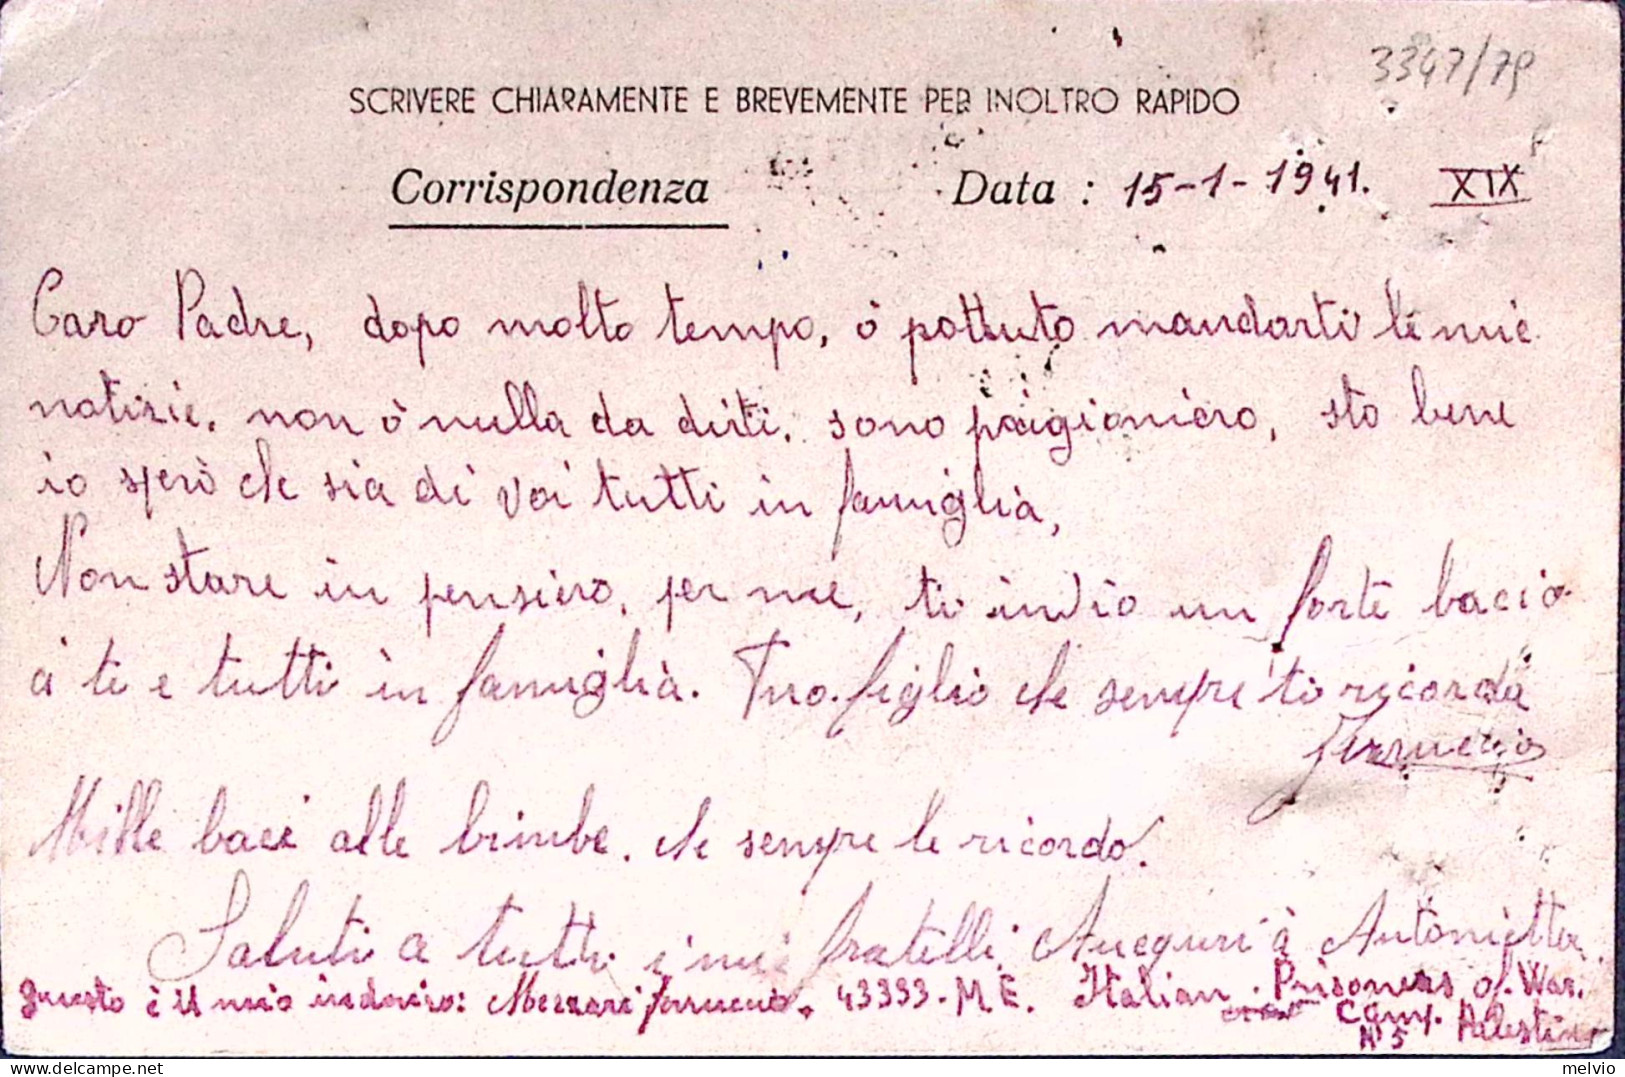 3347/79
SCRIVERE CHIARAMENTE E BREVEMENTE PER INOLTRO RAPIDO
Corrispondenza Data : 15-1-1941. XIX
Caro Padre, dopo molto tempo, ò pottuto mandarti le mie
notizie. non ò nulla da dirti. sono prigioniero, sto bene
io sperò che sia di voi tutti in famiglia,
Non stare in pensiero, per me, ti invio un forte bacio
a te e tutti in famiglia. Tuo figlio che sempre ti ricorda
Ferruccio
Mille baci alle bimbe. che sempre le ricordo.
Saluti a tutti i miei fratelli Aueguri à Antonietta
Questo è il mio indorizo: Mezzari Ferruccio. 43393-M.E. Italian Prisoners of. War.
Camp. Palestine
N° 5
melvio